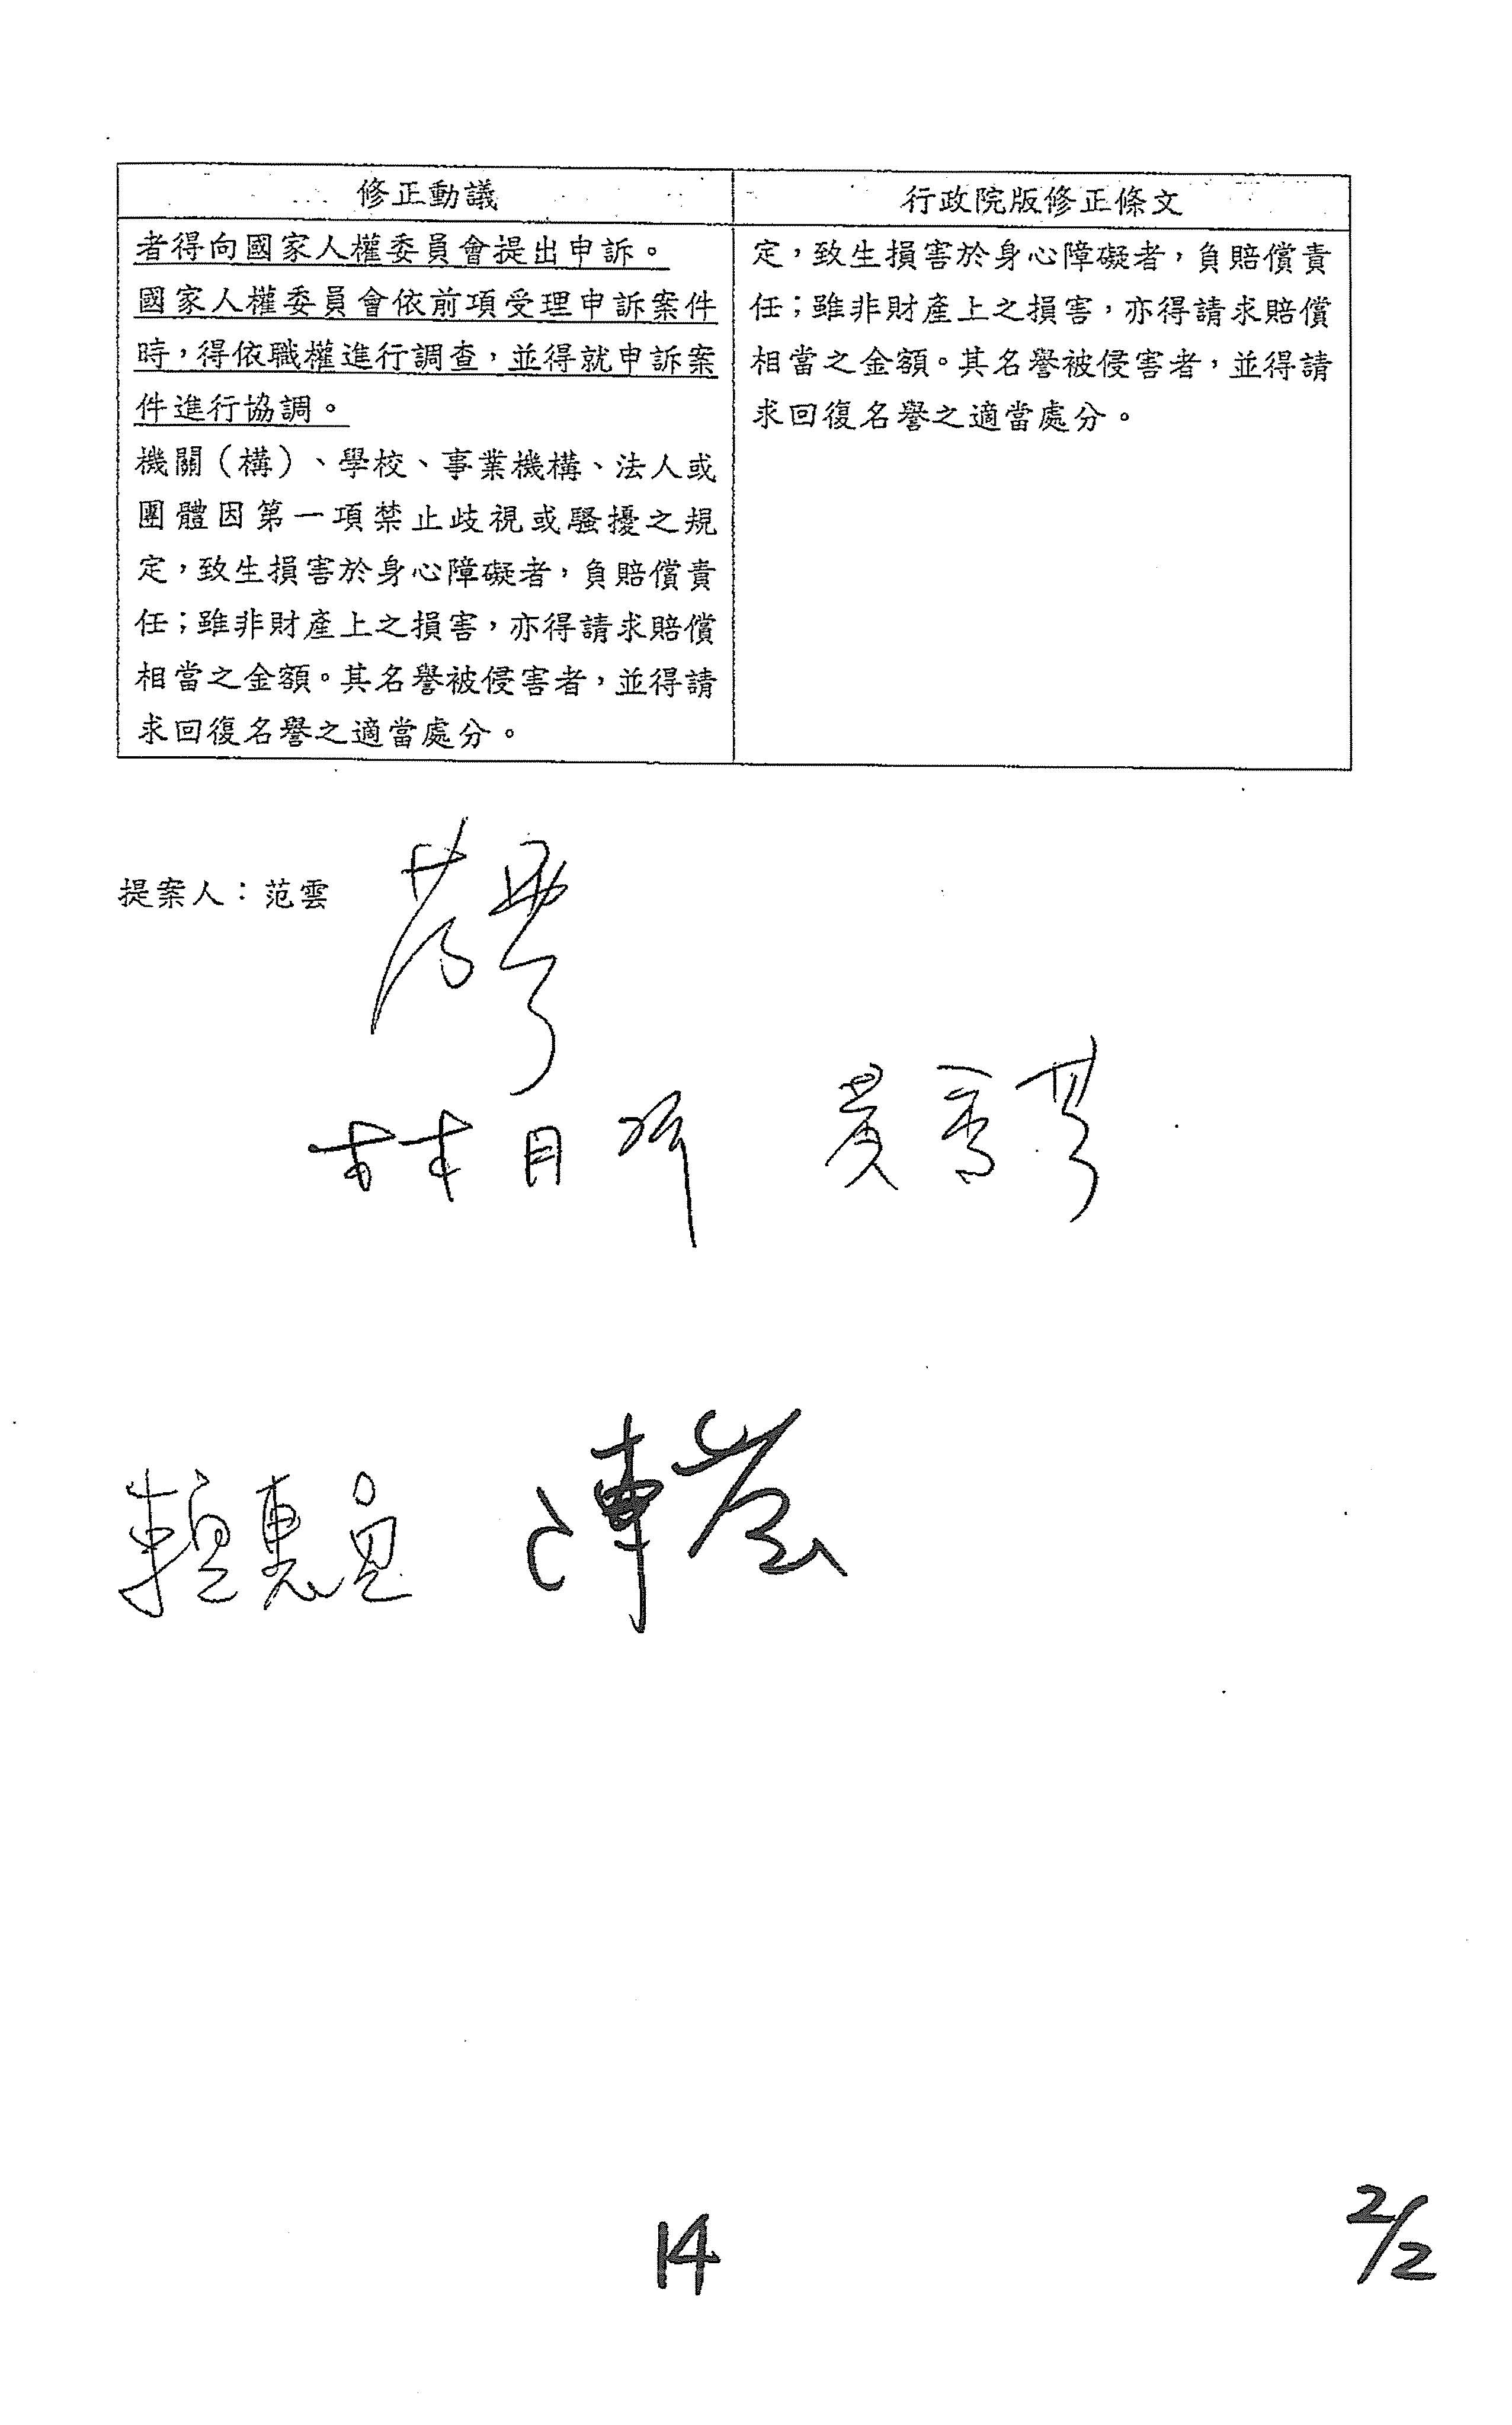 修正動議
行政院版修正條文
者得向國家人權委員會提出申訴。
國家人權委員會依前項受理申訴案件
時,得依職權進行調查,並得就申訴案
件進行協調。
機關(構)、學校、事業機構、法人或
團體因第一項禁止歧視或騷擾之規
定,致生損害於身心障礙者,負賠償責
任;雖非財產上之損害,亦得請求賠償
相當之金額。其名譽被侵害者,並得請
求回復名譽之適當處分。
定,致生損害於身心障礙者,負賠償責
任;雖非財產上之損害,亦得請求賠償
相當之金額。其名譽被侵害者,並得請
求回復名譽之適當處分。
提案人:范雲
范雲
林月琴
黃秀芳
賴惠員
陳瑩
14
2/2